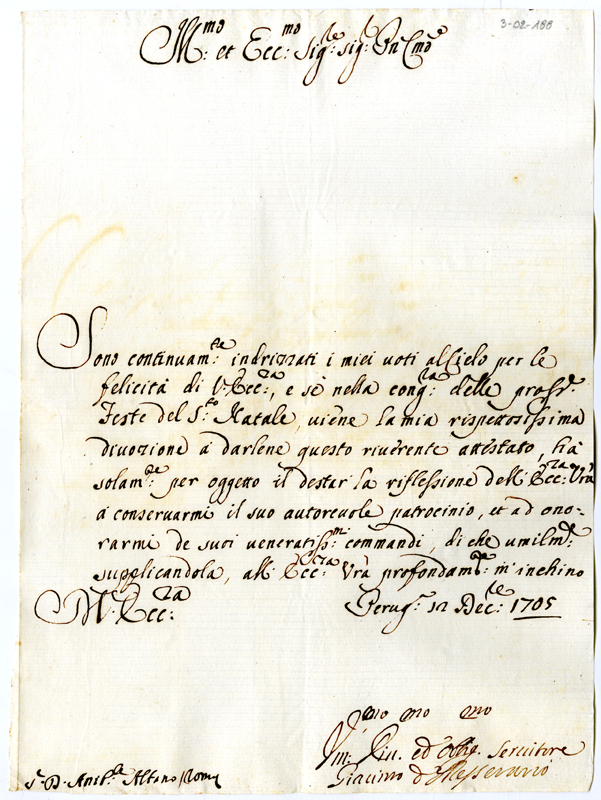 3-02-188
Ill:mo et Ecc:mo Sig:re sig:r Pn Cmo
Sono continuam:te indrizzati i miei voti al Cielo per le
felicità di V. Ecc:za, e se nella cong:ra delle pross:e
Feste del S:to Natale, viene la mia rispettosissima
divozione a darlene questo riverente attestato, hà
solam:te per oggetto il destar la riflessione dell' Ecc:za Vrà
a conservarmi il suo autorevole patrocinio, et ad ono-
rarmi de suoi veneratiss:mi commandi, di che umilm:te
supplicandola, all' Ecc:za Vrà profondam:te m' inchino
Di V. Ecc:za
Perug:a 12 Dec:re 1705
Um:mo Div:mo ed Obbg:mo Servitore
Giacomo
S:r D. Anib:le Albano Roma